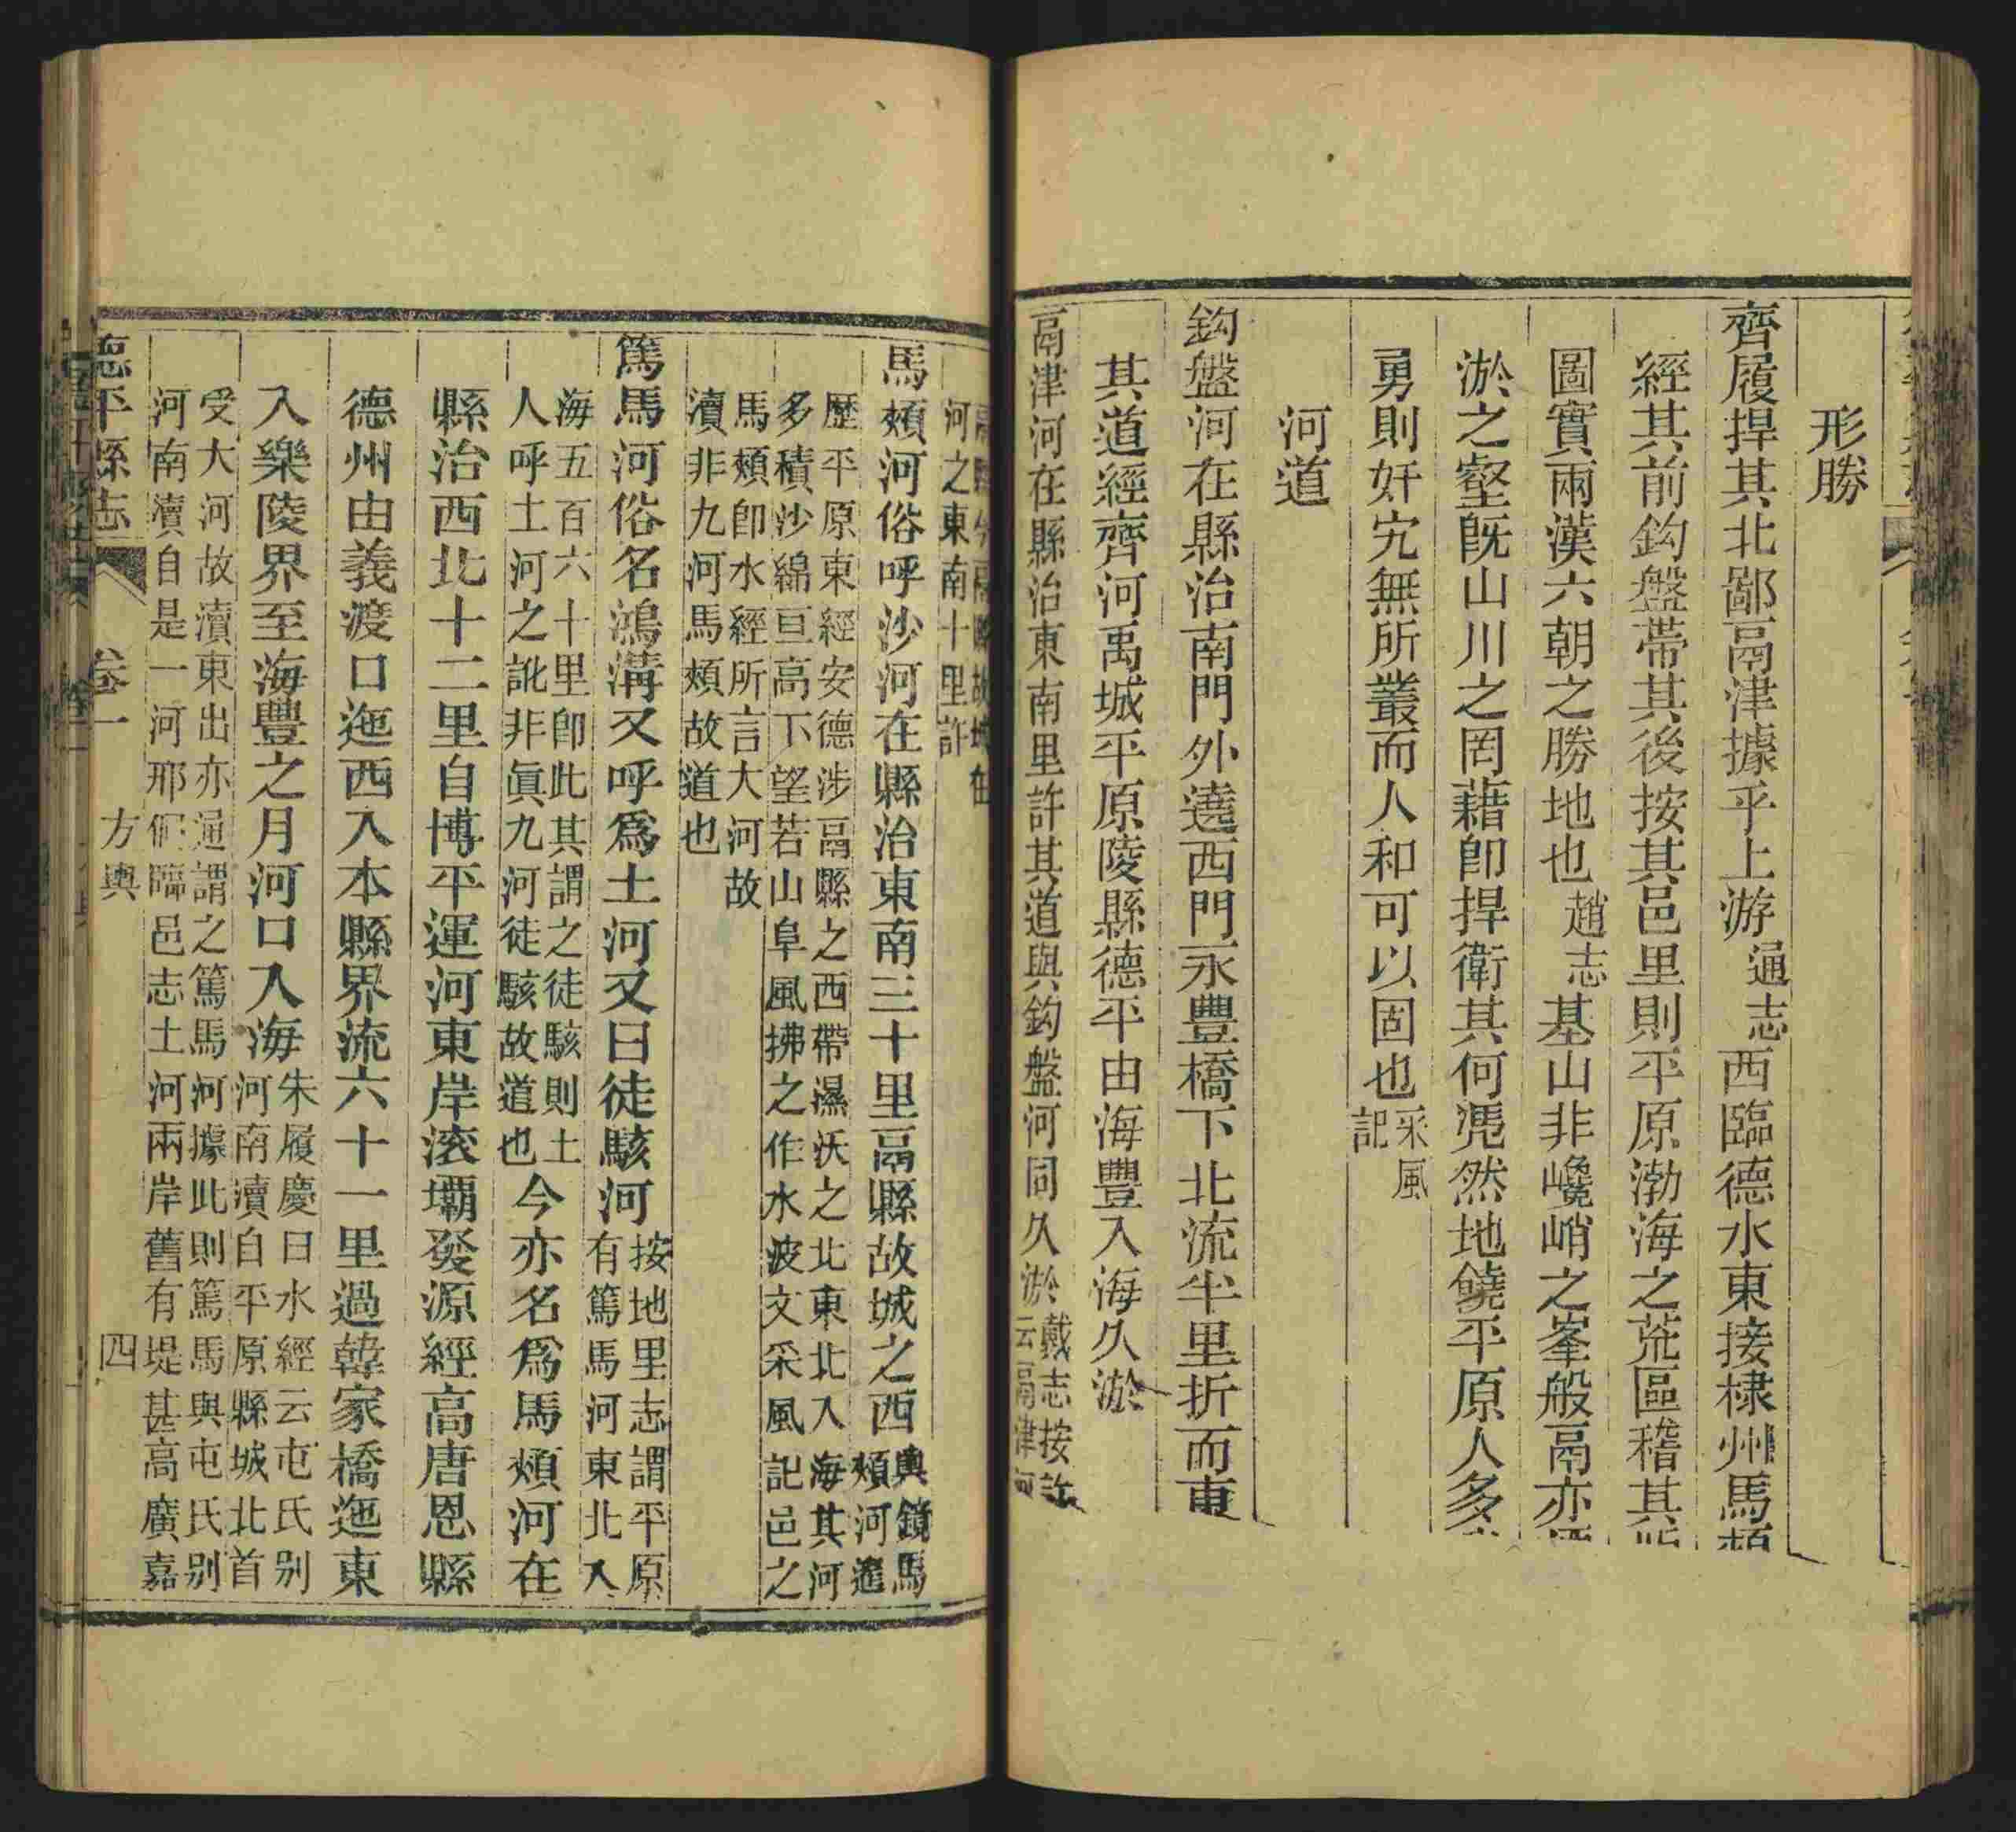 形勝
齊履捍其北鄙鬲津據乎上游通志西臨德水東接棣州馬頰
經其前鈎盤帶其後按其邑里則平原渤海之荒區稽其
圖實兩漢六朝之勝地也趙志基山非巉峭之峯般鬲亦
淤之壑旣山川之罔藉卽捍衛其何凴然地饒平原人多
勇則奸宄無所叢而人和可以固也采風記
河道
鈎盤河在縣治南門外遶西門永豐橋下北流半里折而東
其道經齊河禹城平原陵縣德平由海豐入海久淤
鬲津河在縣治東南里許其道與鈎盤河同久淤戴志按許云鬲津河
河之東南十里許
馬頰河俗呼沙河在縣治東南三十里鬲縣故城之西輿鏡馬頰河遶
歷平原東經安德涉鬲縣之西帶濕沃之北東北入海其河
多積沙綿亘高下望若山阜風拂之作水波文采風記邑之
馬頰卽水經所言大河故
瀆非九河馬頰故道也
篤馬河俗名鴻溝又呼爲土河又曰徒駭河按地里志謂平原有篤馬河東北入
海五百六十里卽此其謂之徒駭則土人呼土河之訛非眞九河徒駭故道也今亦名爲馬頰河在
縣治西北十二里自博平運河東岸滚壩發源經高唐恩縣
德州由義渡口迤西入本縣界流六十一里過韓家橋迤東
入樂陵界至海豐之月河口入海朱履慶曰水經云屯氏别河南瀆自平原縣城北首
受大河故瀆東出亦通謂之篤馬河據此則篤馬與屯氏别
河南瀆自是一河邢侗臨邑志土河兩岸舊有堤甚高廣嘉
德平縣志 卷一 方輿 四